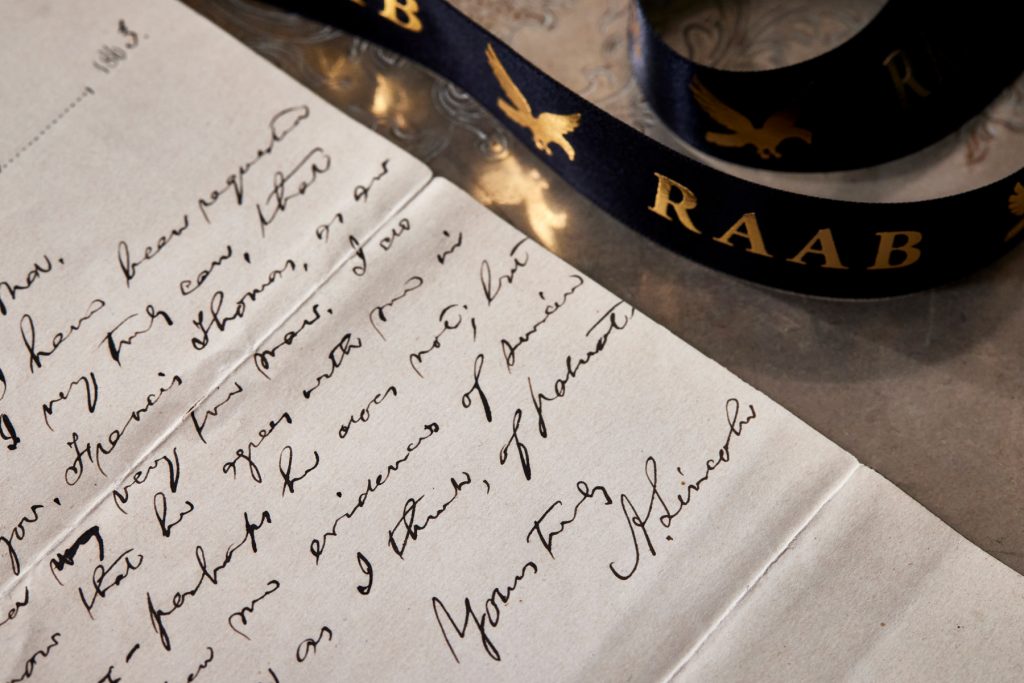 AB
RAAB
RA
1863.
I have been requested
I very truly can, that
you, Francis Thomas, is an
very true man. I do
that he agrees with me in
- perhaps he does not; but
me evidences of service
as I think, of patriot
Yours truly
A. Lincoln